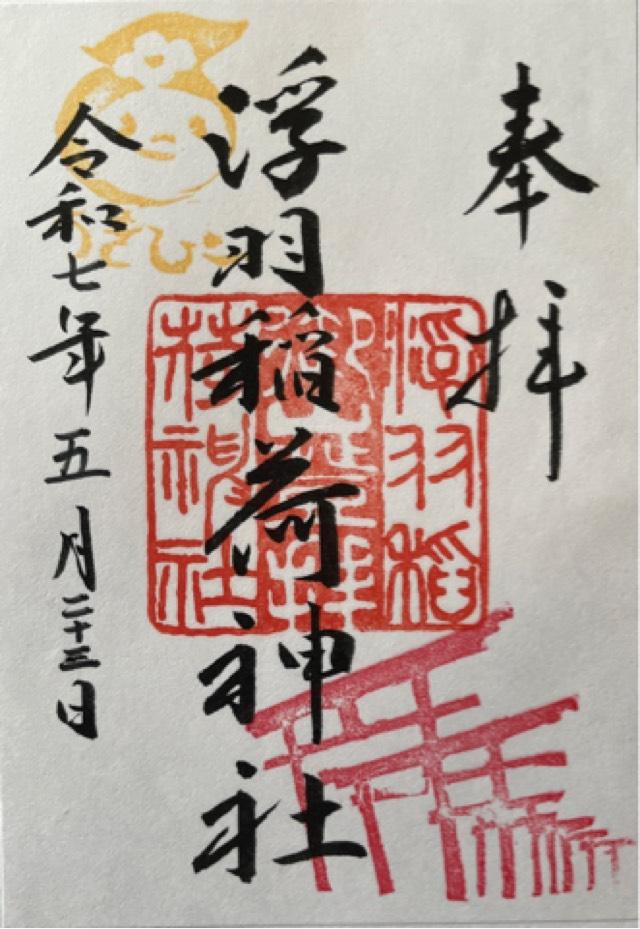 奉拝
浮羽稲荷神社
令和七年五月二十三日
うきぴー